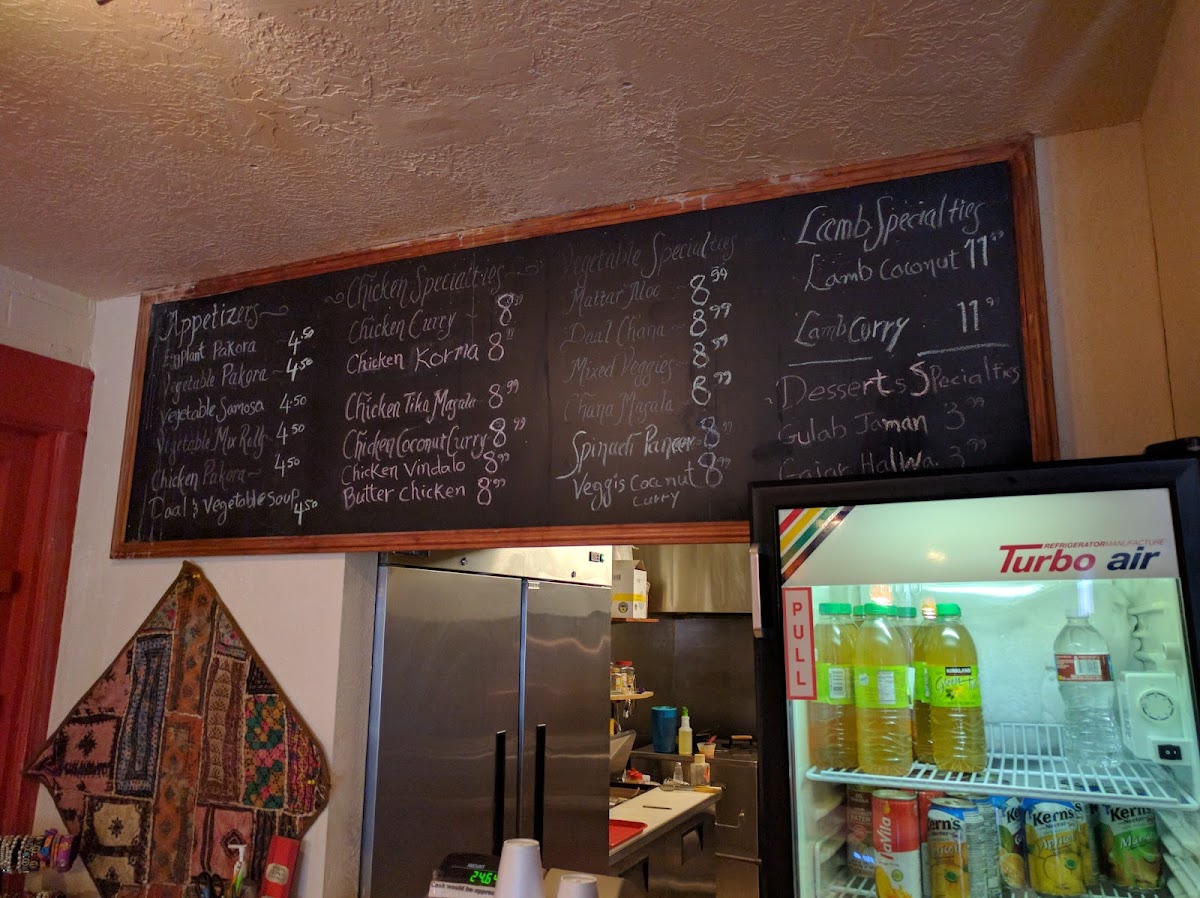 Appetizers
Eniplant Pakora 4.50
Vegetable Pakora 4.50
Vegetable Samosa 4.50
Vegetable Mix Roll 4.50
Chicken Pakora 4.50
Daal & Vegetable Soup 4.50
Chicken Specialties
Chicken Curry 8.99
Chicken Korma 8.99
Chicken Tika Magala 8.99
Chicken Coconut Curry 8.99
Chicken Vindalo 8.99
Butter Chicken 8.99
Vegetable Specialties
Mattar Aloo 8.99
Daal Chana 8.99
Mixed Veggies 8.99
Chana Magala 8.99
Spinach Paneer 8.99
Veggis Coconut 8.99
Curry
Lamb Specialties
Lamb Coconut 11.99
Lamb Curry 11.99
Desserts Specialties
Gulab Jaman 3.99
Gajar Halwa 3.99
REFRIGERATOR MANUFACTURE
Turbo air
PULL
KIRKLAND
Green
Kern's
Kern's
Kern's
AMOUNT
24.64
Cash would be apprec